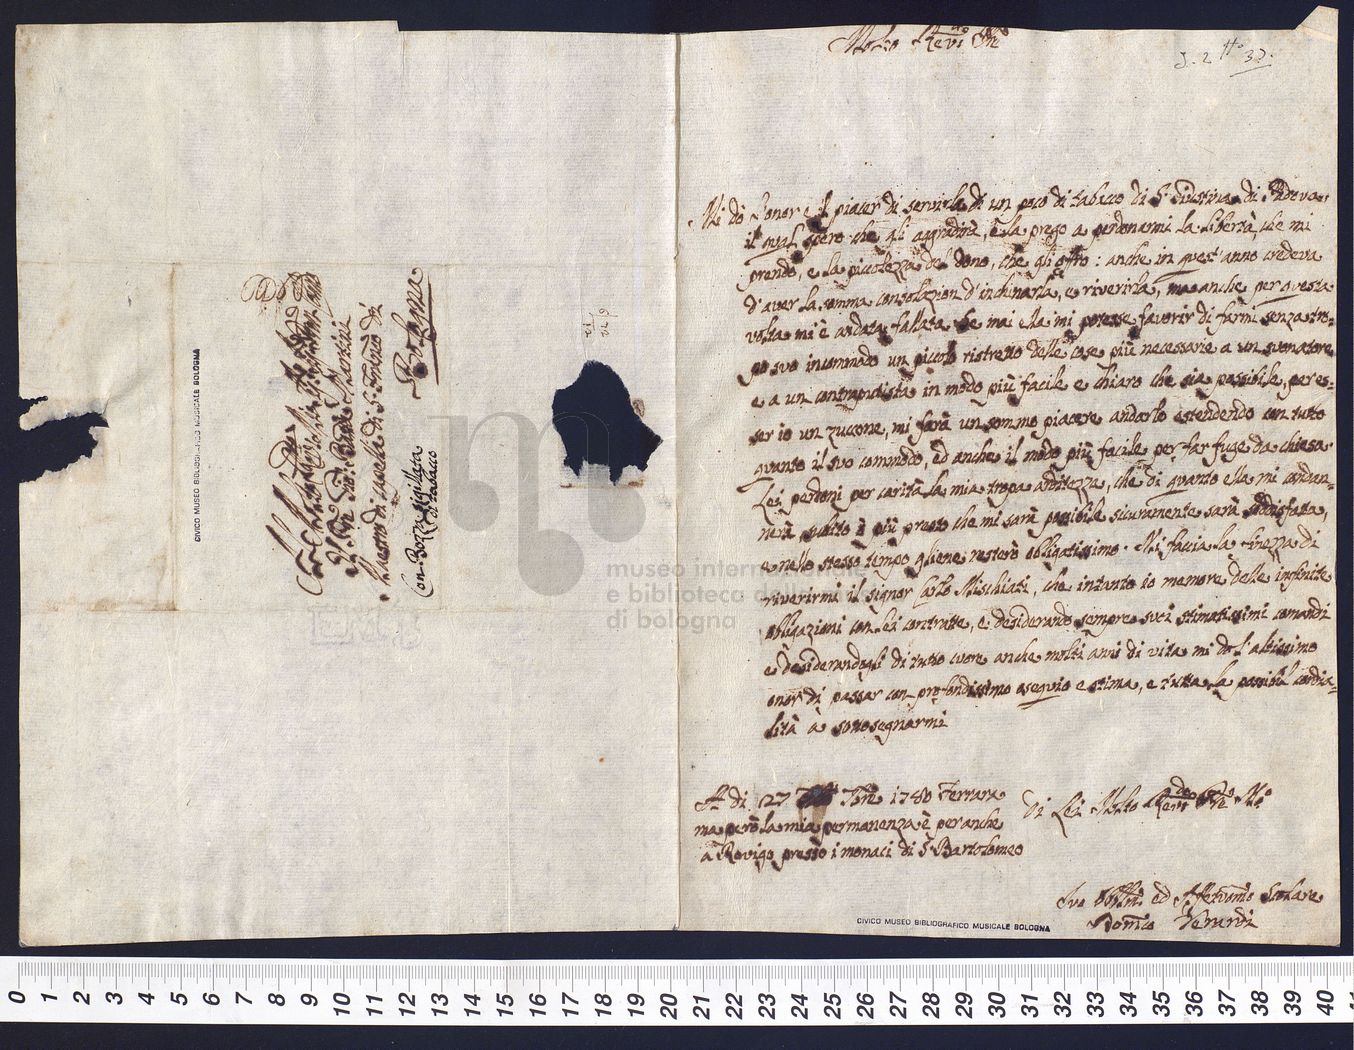 Molto Rev.do P.re
J. 2 tto 37.
Mi dò l'onor e il piacer di servirla di un poco di tabacco di S. Giustina di Padova,
il qual spero che gli aggradirà, e la prego a perdonarmi la libertà, che mi
prendo, e la piccolezza del dono, che gli offro: anche in quest'anno credeva
d'aver la somma consolazion d'inchinarla, e riverirla, ma anche per questa
volta mi è andata fallata. Se mai ella mi potesse favorir di farmi senza tro-
po suo incommodo un piccolo ristretto delle cose più necessarie a un suonatore
e a un contrapuntista in modo più facile e chiaro che sia possibile, per es-
ser io un zuccone, mi farà un sommo piacere andarlo estendendo con tutto
quanto il suo commodo, ed anche il modo più facile per far fuge da chiesa
Lei perdoni per carità la mia tropa arditezza, che di quanto ella mi condan-
nerà, subito è più presto che mi sarà possibile sicuramente sarà soddisfatta,
e nello stesso tempo gliene resterò obligatissimo. Mi faccia la finezza di
riverirmi il signor Carlo Mischiati, che intanto io memore delle infinite
obligazioni con lei contratte, e desiderando sempre suoi stimatissimi comandi
e desiderandogli di tutto cuore anche molti anni di vita mi dò l'altissimo
onor di passar con profondissimo osequio e stima, e tutta la possibil cordia-
lità a sottosegnarmi
A di 27 7bre 1780 Ferrara
ma però la mia permanenza è per anche
a Rovigo presso i monaci di S. Bartolomeo
Di Lei Molto Rev.do P.re M.o
Suo Obblmo ed Affetuosmo Scolare
Domco Verardi
P.re Gio: Batta Martini
Maestro di capella di S. Franco di
Bologna
Con Bozza sigillata
di tabacco
CIVICO MUSEO BIBLIOGRAFICO MUSICALE BOLOGNA
CIVICO MUSEO BIBLIOGRAFICO MUSICALE BOLOGNA
museo internazionale
e biblioteca della
di bologna
0 1 2 3 4 5 6 7 8 9 10 11 12 13 14 15 16 17 18 19 20 21 22 23 24 25 26 27 28 29 30 31 32 33 34 35 36 37 38 39 40